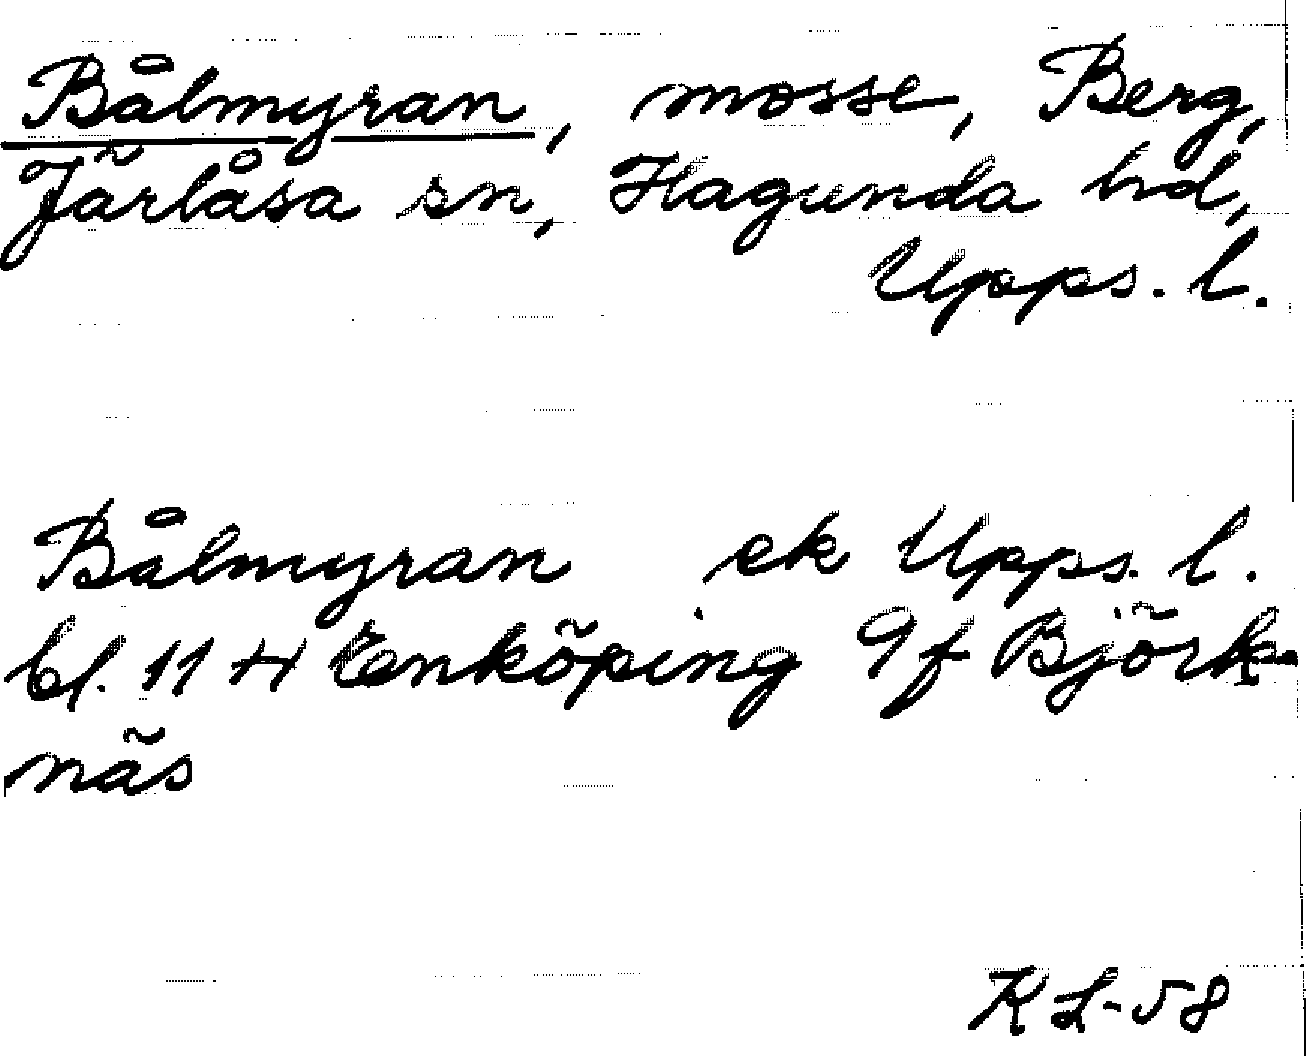 Bålmyran, mosse, Berg,
Järlåsa sn, Hagunda hd,
Upps. l.
Bålmyran ek Upps. l.
bl. 11 H Enköping 9f Björk-
näs
KL-58